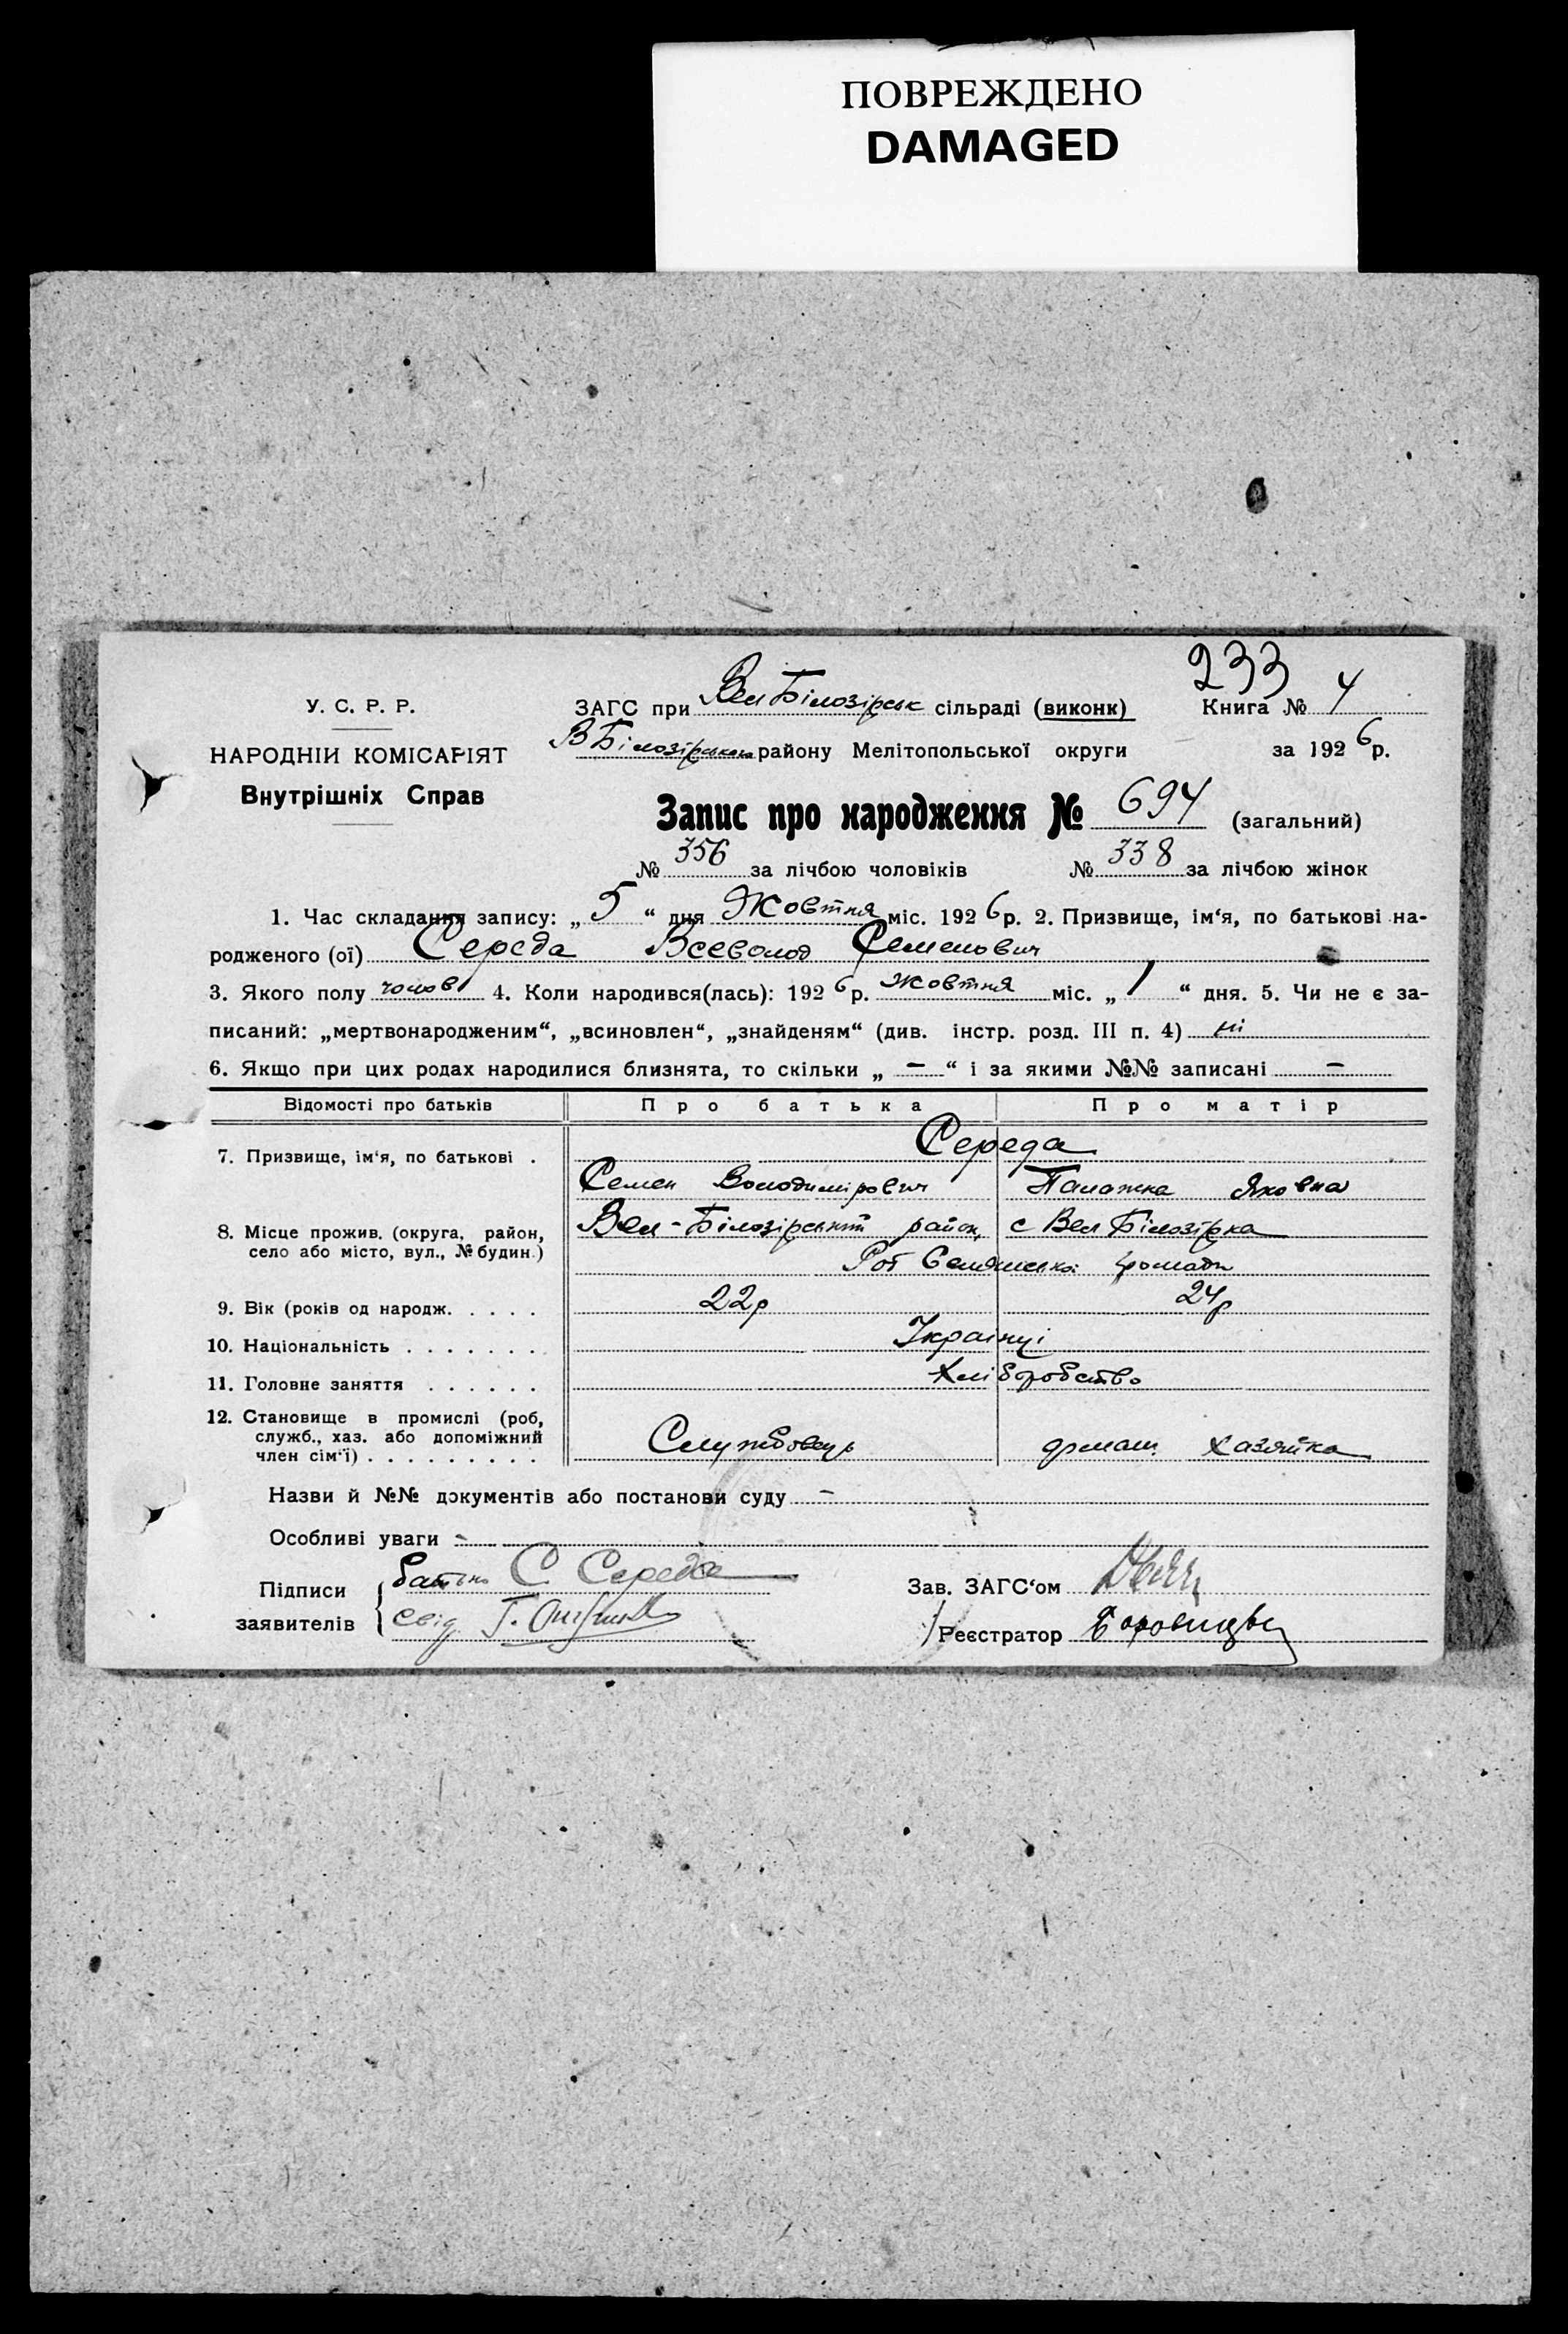 ПОВРЕЖДЕНО
DAMAGED
233
У. С. Р. Р.
ЗАГС при Вел Білозірськ сільраді (виконк)
Книга № 4
НАРОДНІЙ КОМІСАРІЯТ
В Білозірського району Мелітопольської округи
за 1926 р.
Внутрішніх Справ
Запис про народження № 694 (загальний)
№ 356 за лічбою чоловіків № 338 за лічбою жінок
1. Час складання запису: „ 5 “ дня Жовтня міс. 1926 р. 2. Призвище, ім‘я, по батькові на-
родженого (ої) Середа Всеволод Семенович
3. Якого полу чолов 4. Коли народився(лась): 1926 р. жовтня міс. „ 1 “ дня. 5. Чи не є за-
писаний: „мертвонародженим“, „всиновлен“, „знайденям“ (див. інстр. розд. III п. 4) ні
6. Якщо при цих родах народилися близнята, то скільки „ — “ і за якими №№ записані —
Відомості про батьків Про батька Про матір
7. Призвище, ім‘я, по батькові . Середа
Семен Володимірович Палажка Яковна
8. Місце прожив. (округа, район, село або місто, вул., № будин.) Вел-Білозірський район, с Вел Білозірка
громади
9. Вік (років од народж. . . . . 22р 24р
10. Національність . . . . . . . Українці
11. Головне заняття . . . . . . Хліборобство
12. Становище в промислі (роб,
служб., хаз. або допоміжний
член сім‘ї) . . . . . . . . . Службовець домаш. хазяйка
Назви й №№ документів або постанови суду —
Особливі уваги —
Підписи заявителів батько С. Середа
свід. Г.
Зав. ЗАГС‘ом
Реєстратор